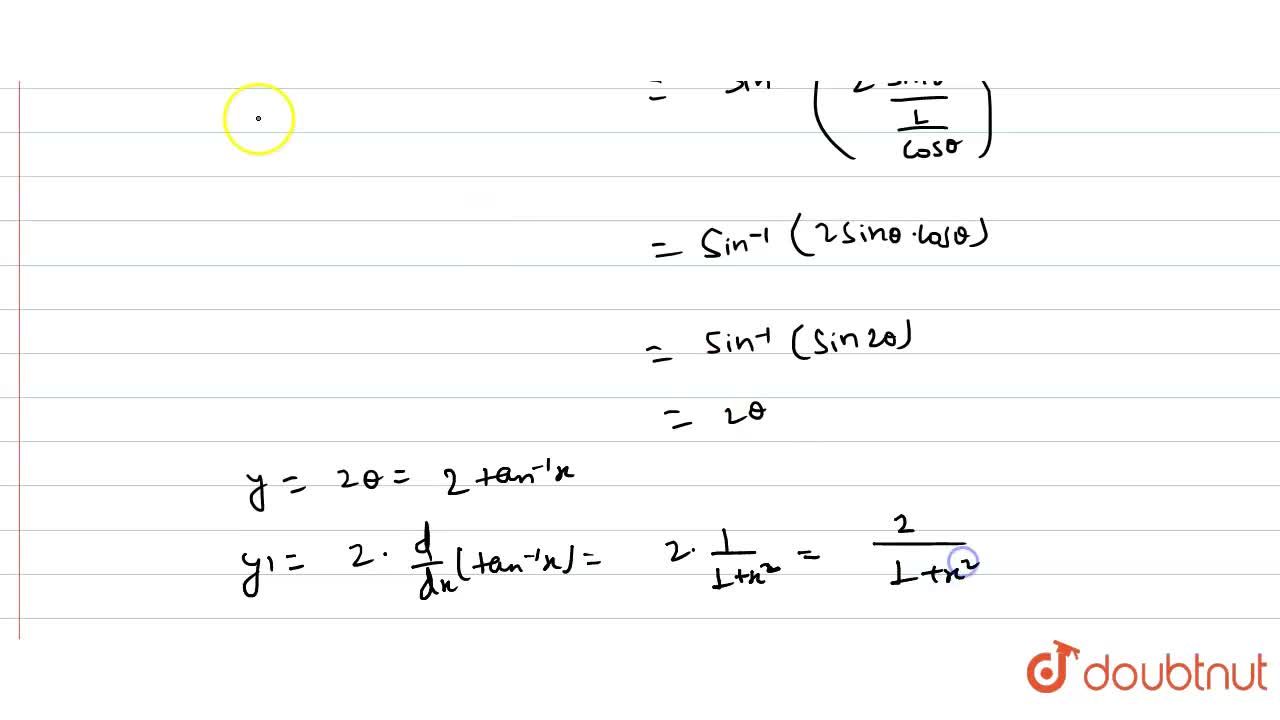 = (2 / 1/cosθ)
= Sin⁻¹ (2 sinθ · cosθ)
= Sin⁻¹ (Sin 2θ)
= 2θ
y = 2θ = 2 tan⁻¹x
y1 = 2 · d/dx (tan⁻¹x) = 2 · 1/1+x² = 2/1+x²
doubtnut